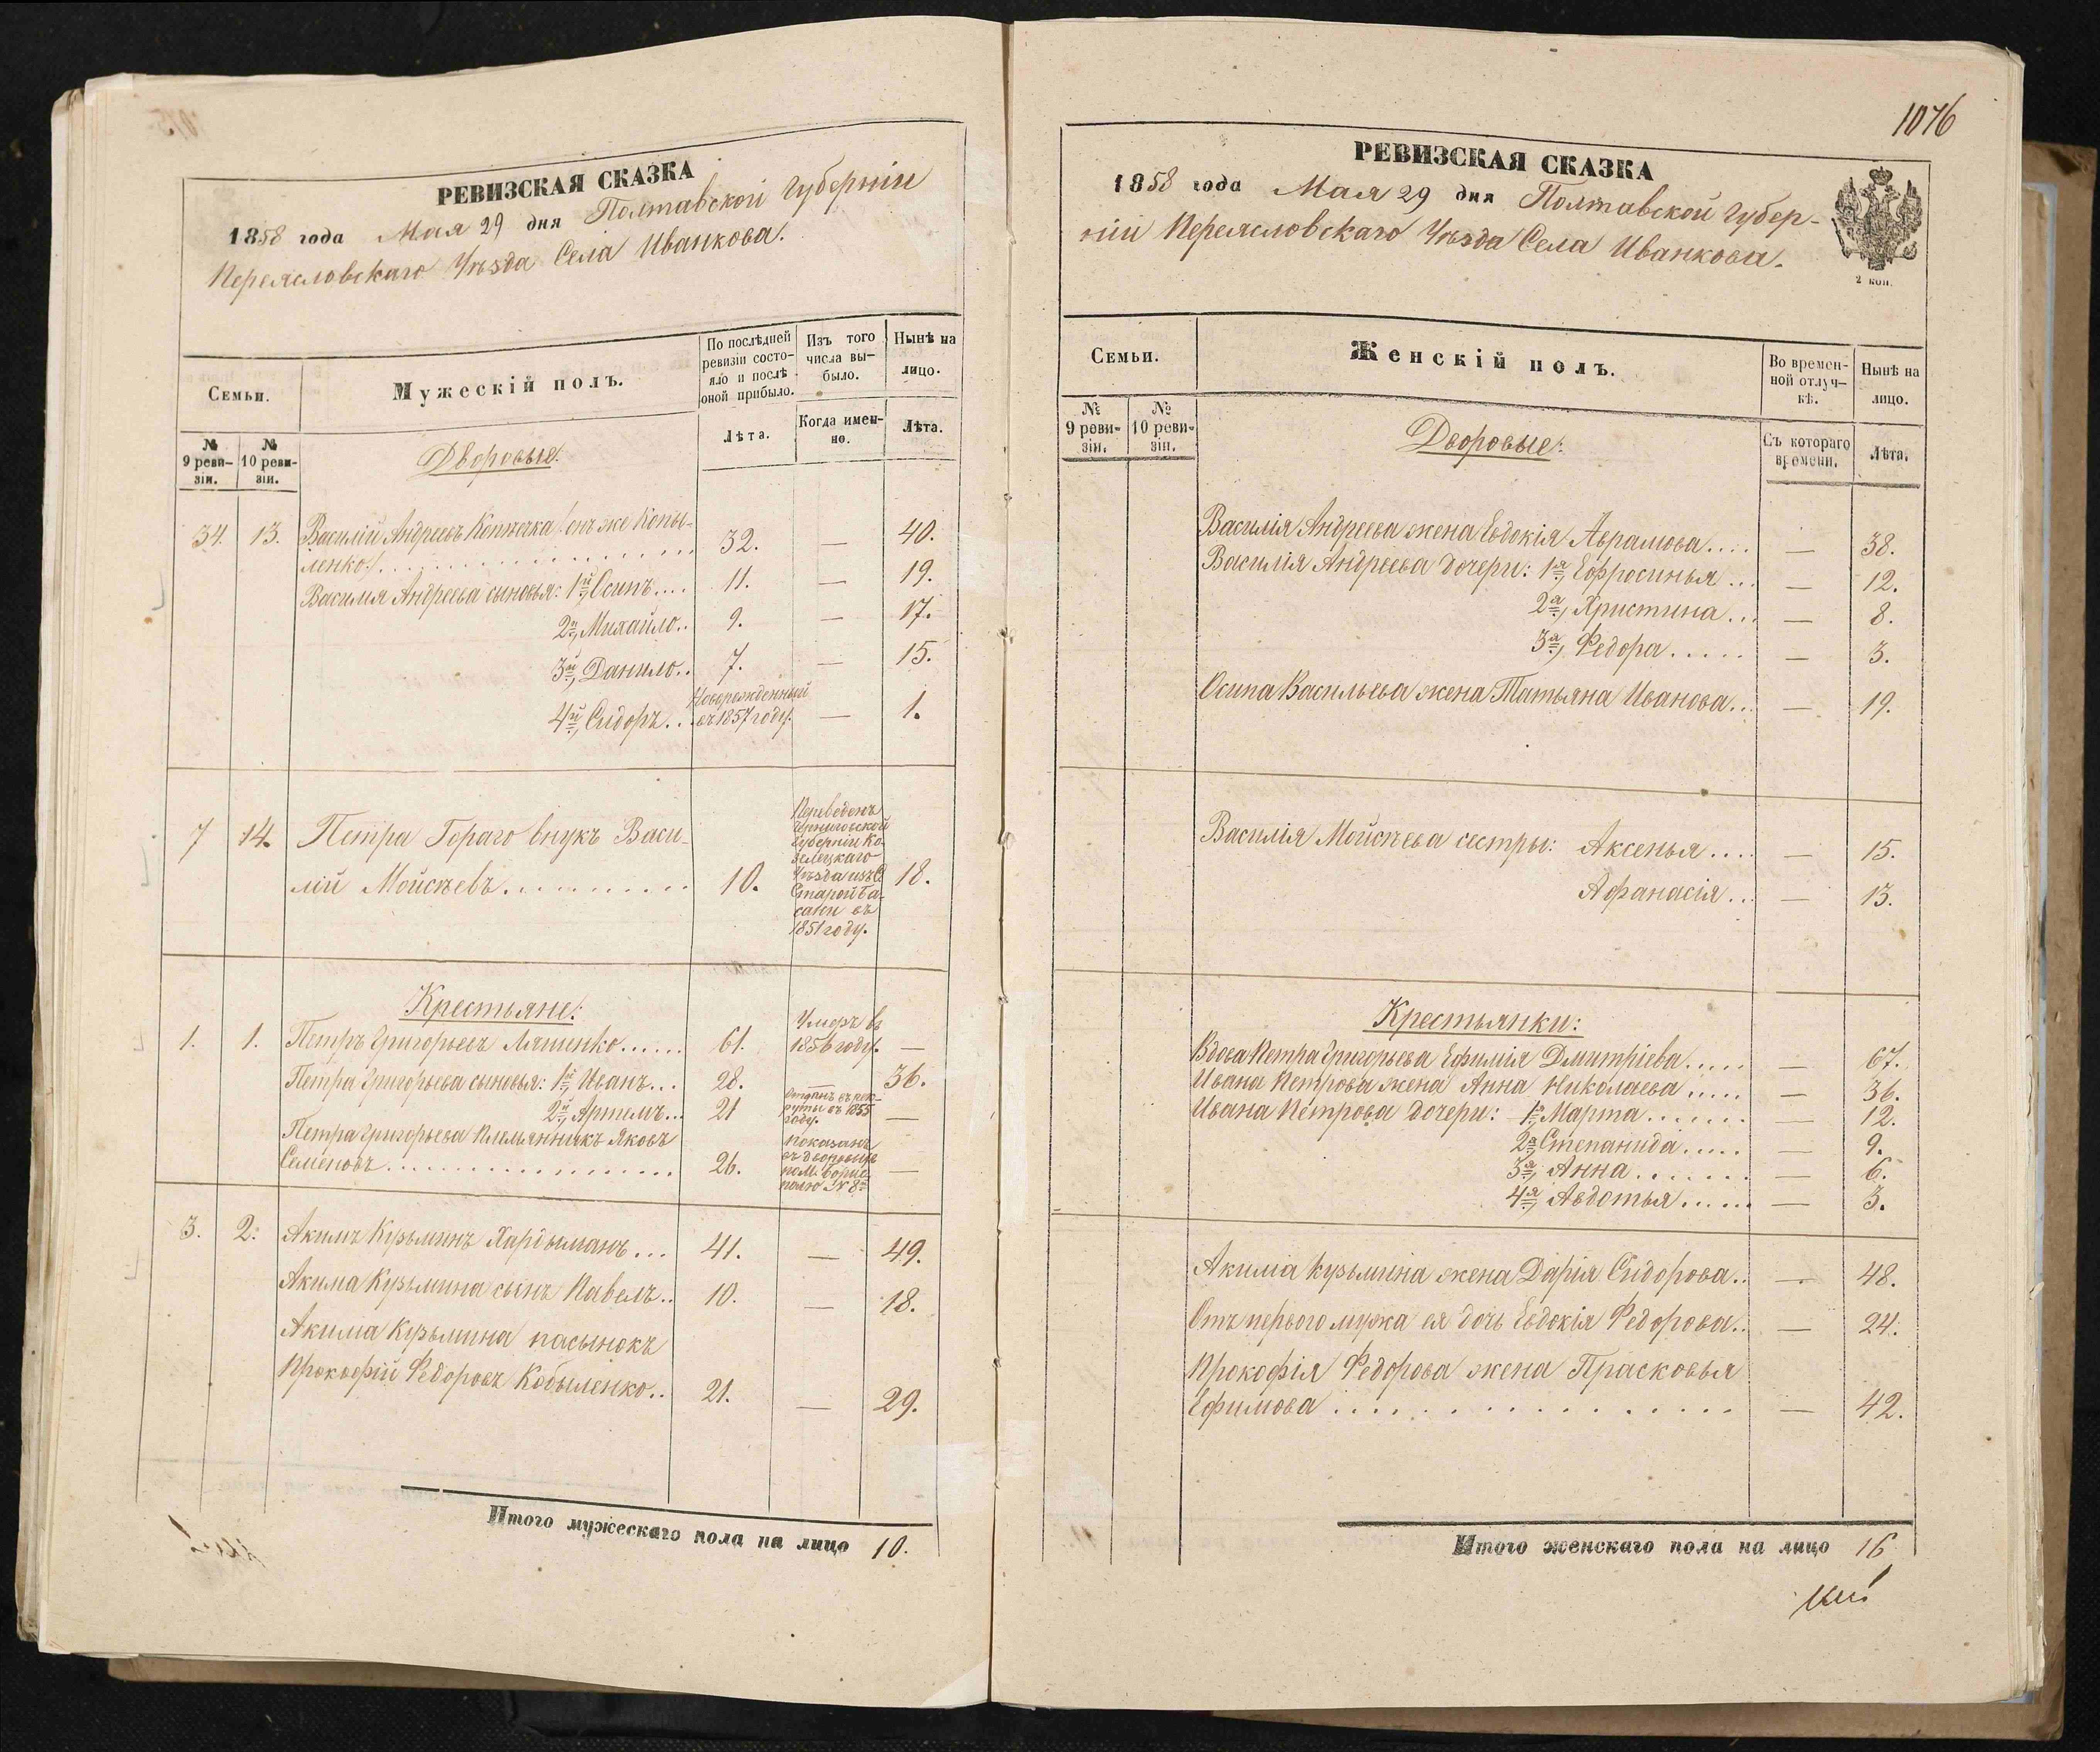 РЕВИЗСКАЯ СКАЗКА
1858 года Мая 29 дня Полтавской Губерніи
Переясловскаго Уѣзда Села Иванкова.
Семьи.
Мужескій полъ.
По послѣдней ревизіи состо-
яло и послѣ оной прибыло.
Изъ того числа вы-
было.
Нынѣ на лицо.
№ 9 реви-
зіи.
№ 10 реви-
зіи.
Лѣта.
Когда имен-
но.
Лѣта.
Дворовые:
34. 13. Василій Андреевъ Копѣечка /онъ же Копы-
ленко/. 32. — 40.
Василія Андреева сыновья: 1й, Осипъ.... 11. — 19.
2й, Михайло.. 9. — 17.
3й, Данило.. 7. — 15.
4й, Сидоръ... Новорожденный въ 1857 году. — 1.
7 14. Петра Гораго внукъ Васи-
лій Мойсѣевъ. 10. 18.
Переведенъ
Черниговской
Губерніи Ко-
зелецкаго
Уѣзда изъ С.
Старой Ба-
сани въ
1851 году.
Крестьяне:
1. 1. Петръ Григорьевъ Ляшенко...... 61. Умеръ въ 1856 году. —
Петра Григорьева сыновья: 1й, Иванъ... 28. — 36.
2й, Артемъ... 21 Отданъ въ рек-
руты въ 1855 году. —
Петра Григорьева племянникъ Яковъ
Семеновъ. 26. —
Показанъ
въ дворовыхъ
по М. Борис-
полю № 8й
3. 2. Акимъ Кузьминъ Хардыманъ... 41. — 49.
Акима Кузьмина сынъ Павелъ.. 10. — 18.
Акима Кузьмина пасынокъ
Прокофій Федоровъ Кобыленко.. 21. — 29.
Итого мужескаго пола на лицо 10.
1076
РЕВИЗСКАЯ СКАЗКА
1858 года Мая 29 дня Полтавской Губер-
ніи Переясловскаго Уѣзда Села Иванкова.
2 коп.
Семьи.
Женскій полъ.
Во времен-
ной отлуч-
кѣ.
Нынѣ на лицо.
№ 9 реви-
зіи.
№ 10 реви-
зіи.
Съ котораго времени.
Лѣта.
Дворовые:
Василія Андреева жена Евдокія Аврамова.... — 38.
Василія Андреева дочери: 1я, Ефросинья... — 12.
2я, Христина... — 8.
3я, Федора..... — 3.
Осипа Васильева жена Татьяна Иванова... — 19.
Василія Мойсѣева сестры: Аксенья.... — 15.
Афанасія... — 13.
Крестьянки:
Вдова Петра Григорьева Ефимія Дмитріева..... — 67.
Ивана Петрова жена Анна Николаева..... — 36.
Ивана Петрова дочери: 1я, Марта....... — 12.
2я, Степанида..... — 9.
3я, Анна....... — 6.
4я, Авдотья...... — 3.
Акима Кузьмина жена Дарія Сидорова.. — 48.
Отъ перваго мужа ея дочь Евдокія Федорова.. — 24.
Прокофія Федорова жена Прасковья
Ефимова — 42.
Итого женскаго пола на лицо 16